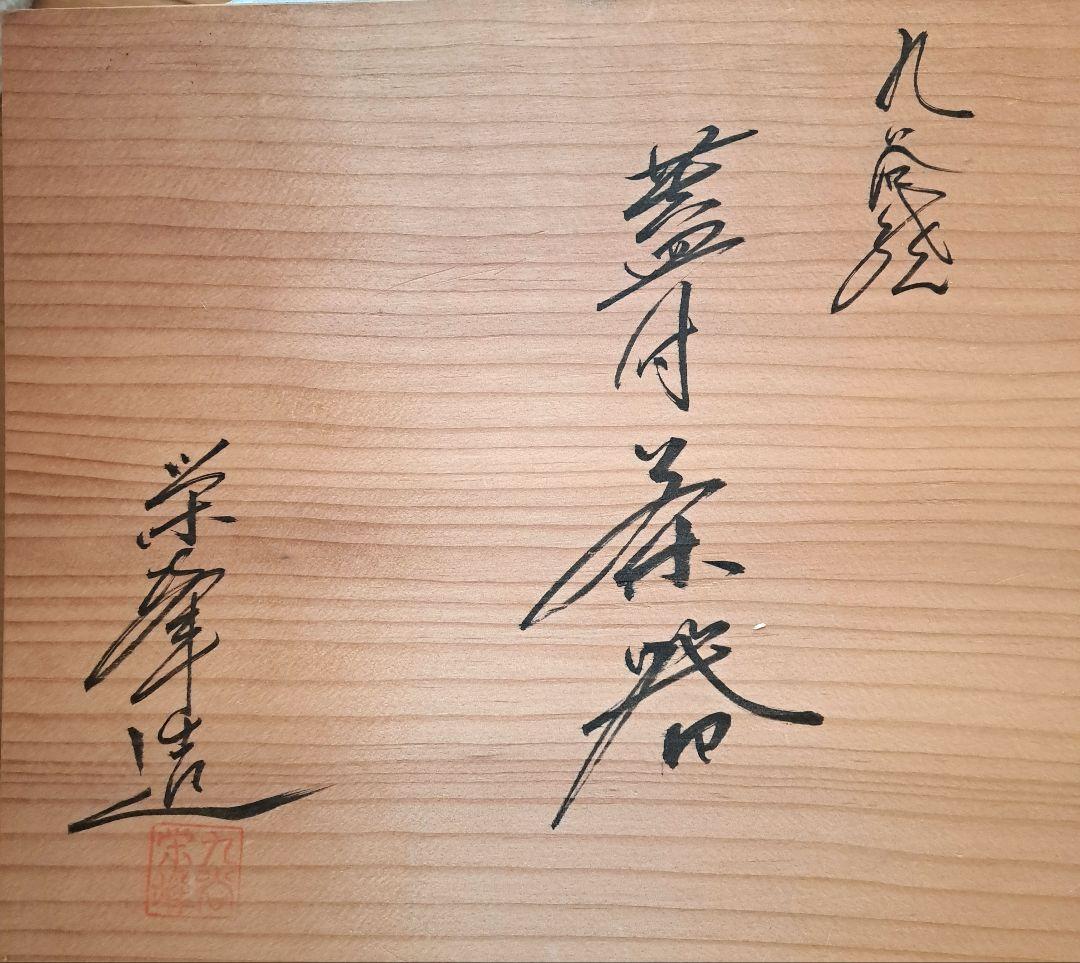 九谷窯
蓋付茶器
栄峰造
九谷
栄峰